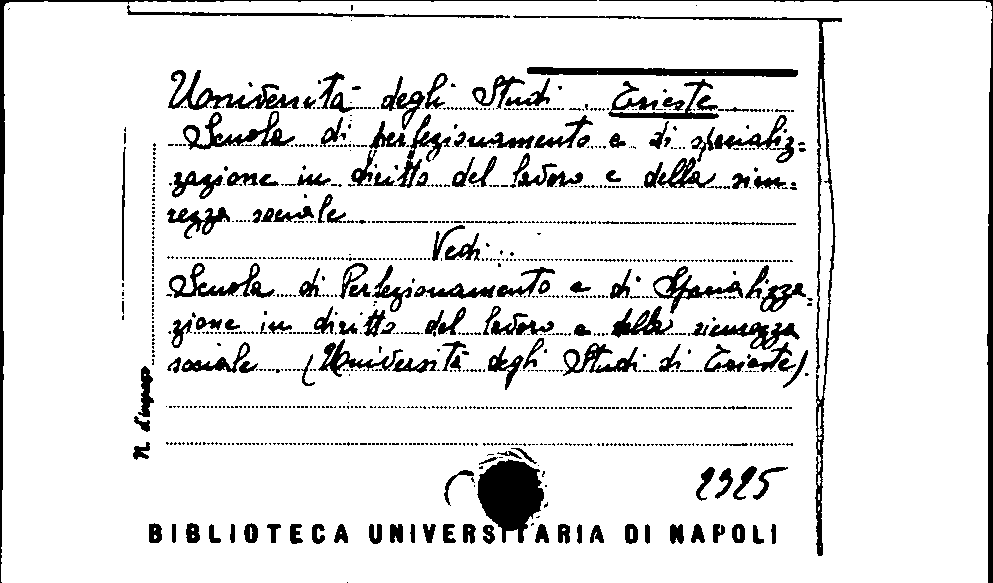 Università degli Studi. Trieste.
Scuola di perfezionamento e di specializ=
zazione in diritto del lavoro e della sicu=
rezza sociale.
Vedi:
Scuola di Perfezionamento e di Specializza=
zione in diritto del lavoro e della sicurezza
sociale. (Università degli Studi di Trieste).
N. d'ingresso
2325
BIBLIOTECA UNIVERSITARIA DI NAPOLI